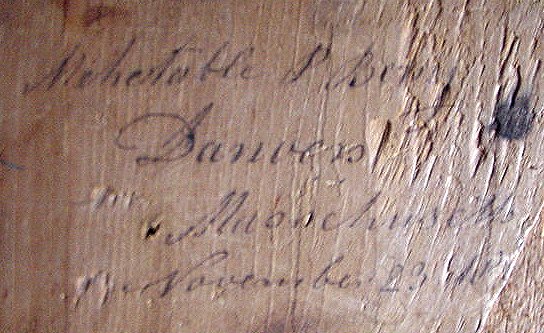 Mehetable P Berry
Danvers
Massachusetts
November 23